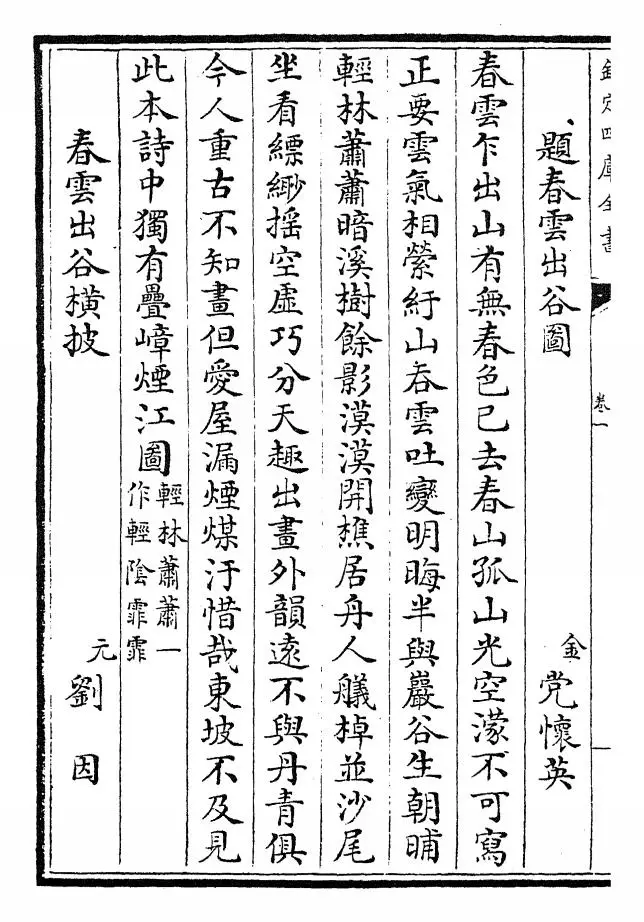 欽定四庫全書
卷一
題春雲出谷圖 金 党懷英
春雲乍出山有無春色已去春山孤山光空濛不可寫
正要雲氣相縈紆山吞雲吐變明晦半與巖谷生朝晡
輕林蕭蕭暗溪樹餘影漠漠開樵居舟人艤棹並沙尾
坐看縹緲揺空虛巧分天趣出畫外韻遠不與丹青俱
今人重古不知畫但愛屋漏煙煤汙惜哉東坡不及見
此本詩中獨有疊嶂煙江圖 輕林蕭蕭一
作輕陰霏霏
春雲出谷横披 元 劉因